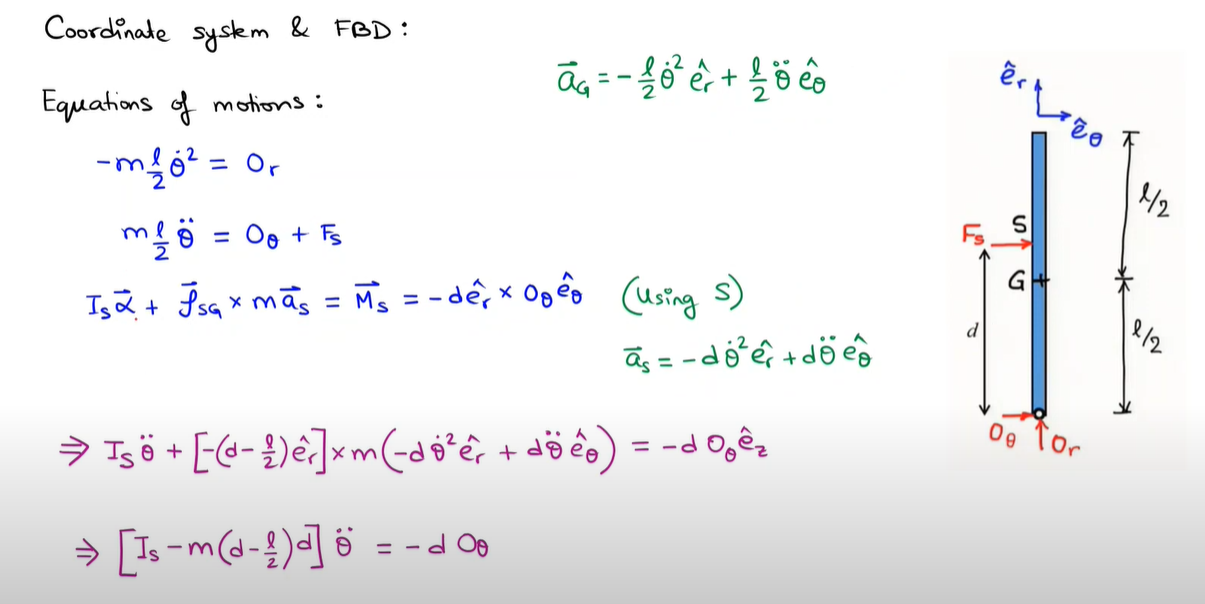 Coordinate system & FBD:
a⃗_G = -l/2 θ̇² ê_r + l/2 θ̈ ê_θ
Equations of motions:
-m l/2 θ̇² = O_r
m l/2 θ̈ = O_θ + F_s
I_s α⃗ + ρ⃗_SG × m a⃗_s = M⃗_s = -d ê_r × O_θ ê_θ (using S)
a⃗_s = -d θ̇² ê_r + d θ̈ ê_θ
⇒ I_s θ̈ + [-(d - l/2) ê_r] × m(-d θ̇² ê_r + d θ̈ ê_θ) = -d O_θ ê_z
⇒ [I_s - m(d - l/2)d] θ̈ = -d O_θ
ê_r
ê_θ
l/2
F_s
S
G
d
l/2
O_θ
O_r